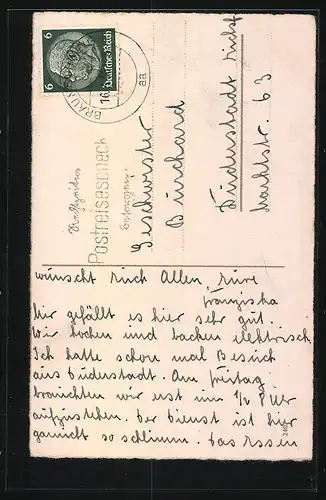 6 6
Deutsches Reich
BRAUN
16.
aa
Postreisescheck
Geschwister
Burchard
Duderstadt
Marktstr. 63
wünscht Euch Allen, Eure
Franziska
Mir gefällt es hier sehr gut
Wir kochen und backen elektrisch
Ich hatte schon mal Besuch
aus Duderstadt. Am Freitag
brauchten wir erst um 1/2 8 Uhr
aufzustehen. Der Dienst ist hier
garnicht so schlimm. Das Essen